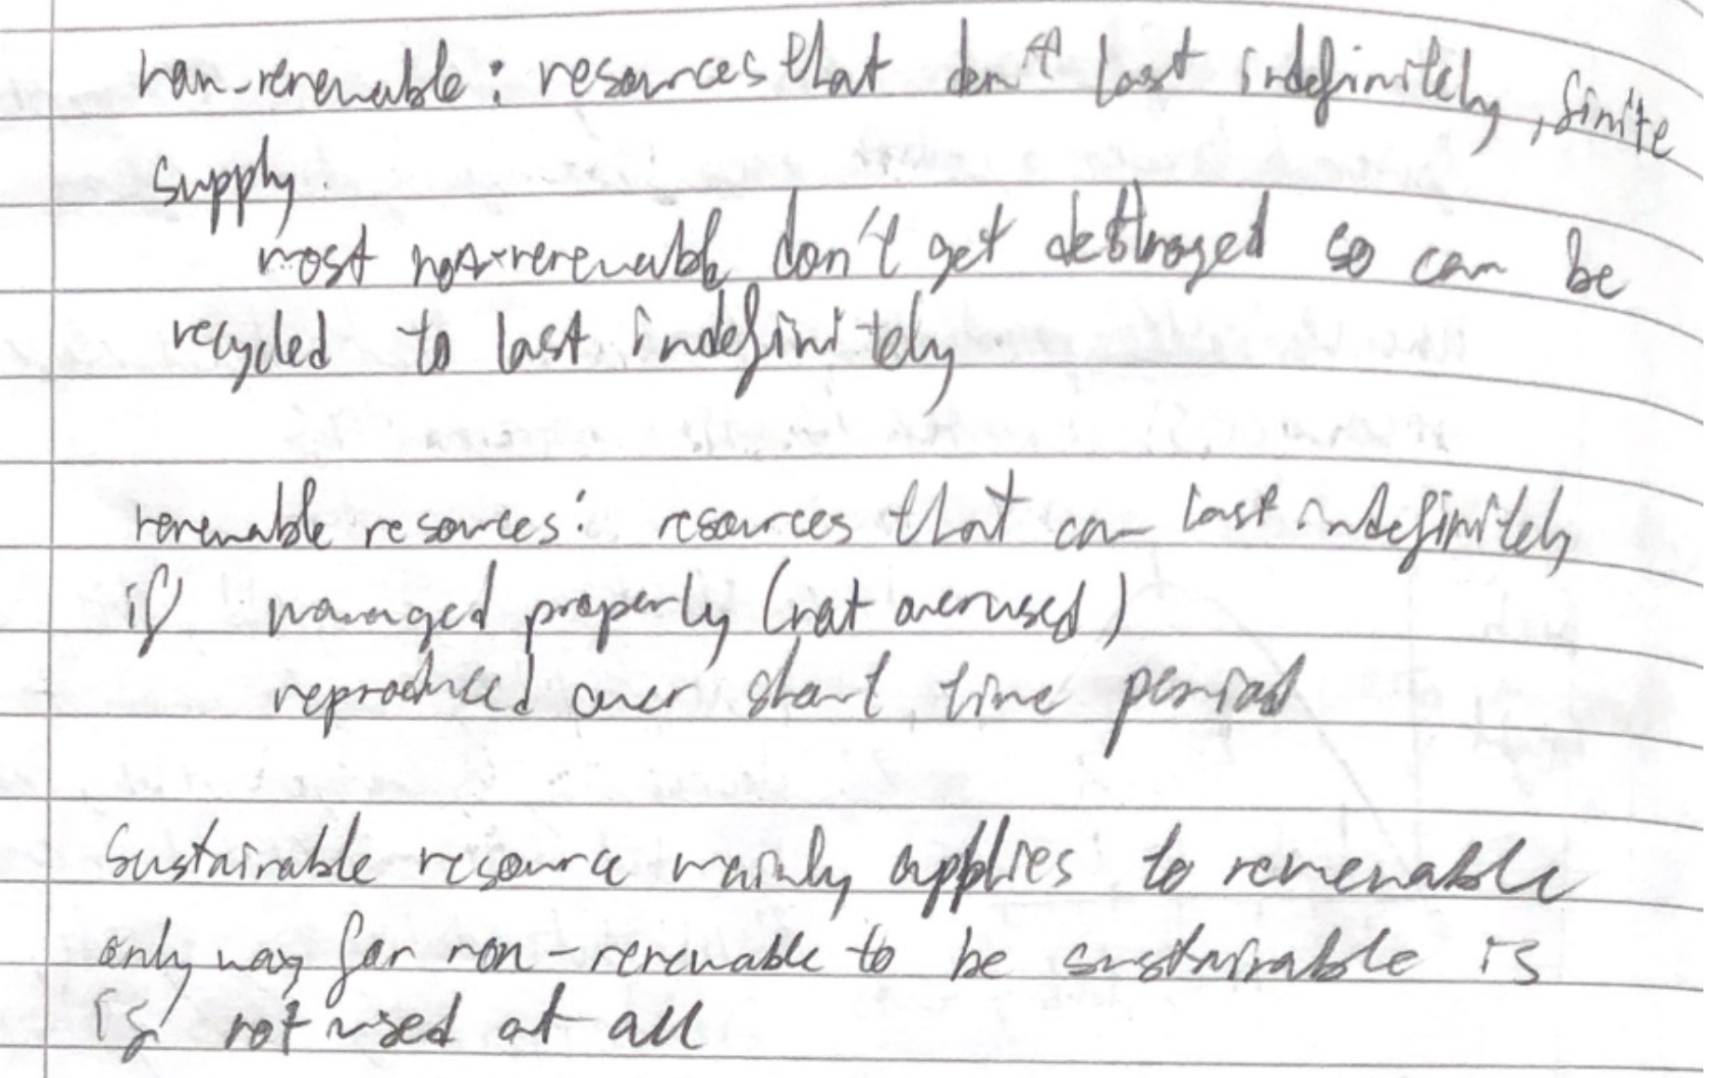 non-renewable: resources that don't last indefinitely, finite
supply.
most non-renewable don't get destroyed so can be
recycled to last indefinitely
renewable resources: resources that can last indefinitely
if managed properly (not overused)
reproduced over short time period
Sustainable resource mainly applies to renewable
only way for non-renewable to be sustainable is
if not used at all